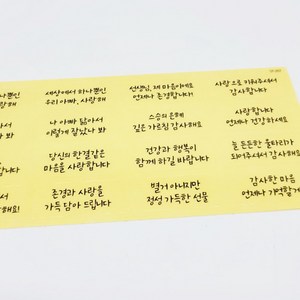 세상에서 하나뿐인
우리 아빠, 사랑해
선생님, 제 마음이에요
언제나 존경합니다!
사랑으로 키워주셔서
감사합니다
나 아빠 닮아서
이렇게 잘났나 봐
스승의 은혜
깊은 가르침 감사해요
사랑합니다
언제나 건강하세요
당신의 한결같은
마음을 사랑합니다
건강과 행복이
함께 하길 바랍니다
늘 든든한 울타리가
되어주셔서 감사해요
존경과 사랑을
가득 담아 드립니다
별거 아니지만
정성 가득한 선물
감사한 마음
언제나 기억할게